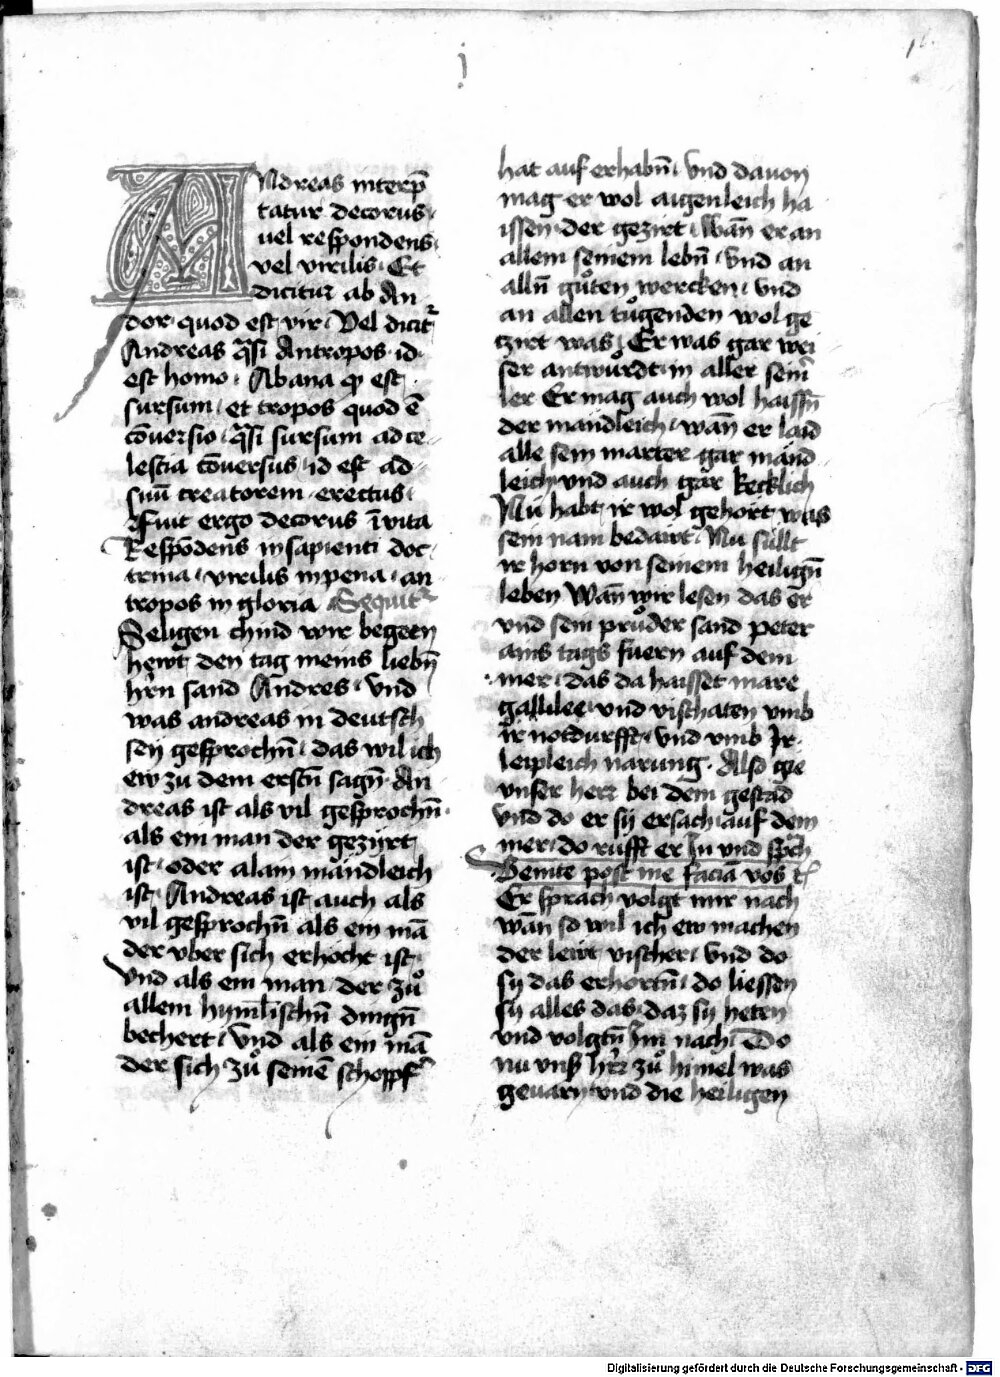 j
1
ANdreas interp̄
tatur decorus
uel respondens
vel virilis Et
dicitur ab An
dor quod est vir Vel dicit᷑
Andreas q̄si Antropos id
est homo Abana qͥ est
sursum et tropos quod ē
cōuersio q̄si sursum ad ce
lestia cōuersus id est ad
suū creatorem erectus
Fuit ergo decorus ī vita
Respōdens in sapienti doc
trina virilis in pena an
tropos in gloria Sequit᷑
Seligen chind wir begeen
hewt den tag meins liebn̄
hrn̄ sand Andres Vnd
was andreas in deutsch
sey gesprochn̄ das wil ich
ew zu dem erstn̄ sagn̄ An
dreas ist als vil gesprochn̄
als ein man der geziert
ist oder alain mandleich
ist Andreas ist auch als
vil gesprochn̄ als ein mā
der vber sich erhocht ist
Vnd als ein man der zuͦ
allem himlischn̄ dingn̄
bechert Vnd als ein mā
der sich zuͦ seinē schopf᷑
hat auf erhabn̄ Vnd dauon
mag er wol aigenleich ha
issen der geziert Wan̄ er an
allem seinem lebn̄ Vnd an
alln̄ guͦten wercken Vnd
an allen tuͦgenden wol ge
tzirt was Er was gar wei
ser antwuͦrdt in aller sein᷑
ler Er mag auch wol haissn̄
der mandleich wan̄ er laid
alle sein marter gar mand
leich vnd auch gar kecklich
Nu habt ir wol gehort was
sein nam bedäwt Nu sullt
ir horn von seinem heilign̄
leben Wan̄ wir lesen das er
vnd sein pruͦder sand peter
ains tags fuern auf dem
mer das da haisset mare
gallilee vnd vischaten vmb
ir notdurfft vnd vmb Ir
leipleich narung Also gie
vnser herr bei dem gestad
Vnd do er sy ersach auf dem
mer do rufft er In vnd sprach
Venite post me faciā vos
Er sprach volgt mir nach
wan̄ so wil ich ew machen
der lewt vischer Vnd do
sy das erhortn̄ do liessen
sy alles das daz sy heten
vnd volgtn̄ Im nach Do
nu vnß hrr̄ zuͦ himel was
geuarn vnd die heiligen
Digitalisierung gefördert durch die Deutsche Forschungsgemeinschaft - DFG